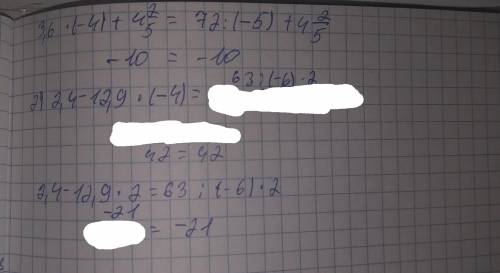 3,6 · (-4) + 4 2/5 = 72 : (-5) + 4 2/5
-10 = -10
63 : (-6) · 2
2) 2,4 - 12,9 · (-4) =
42 = 42
2,4 - 12,9 · 2 = 63 : (-6) · 2
-21
= -21